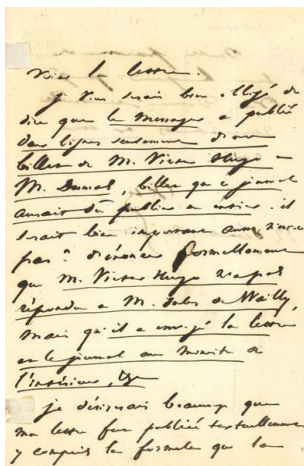 Voici la lettre.
je vous serais bien obligé de
dire que le Messager a publié
deux lignes seulement d'un
billet de M. Victor Hugo à
M. Dumas, billet que ce journal
aurait dû publier en entier. il
serait bien important aussi, n'est-ce
pas ? d'énoncer formellement
que M. Victor Hugo n'a pas
répondu à M. Jules de Wailly,
mais qu'il a envoyé la lettre
et le journal au ministre de
l'intérieur,
je désirerais beaucoup que
ma lettre fût publiée textuellement
y compris la formule que la